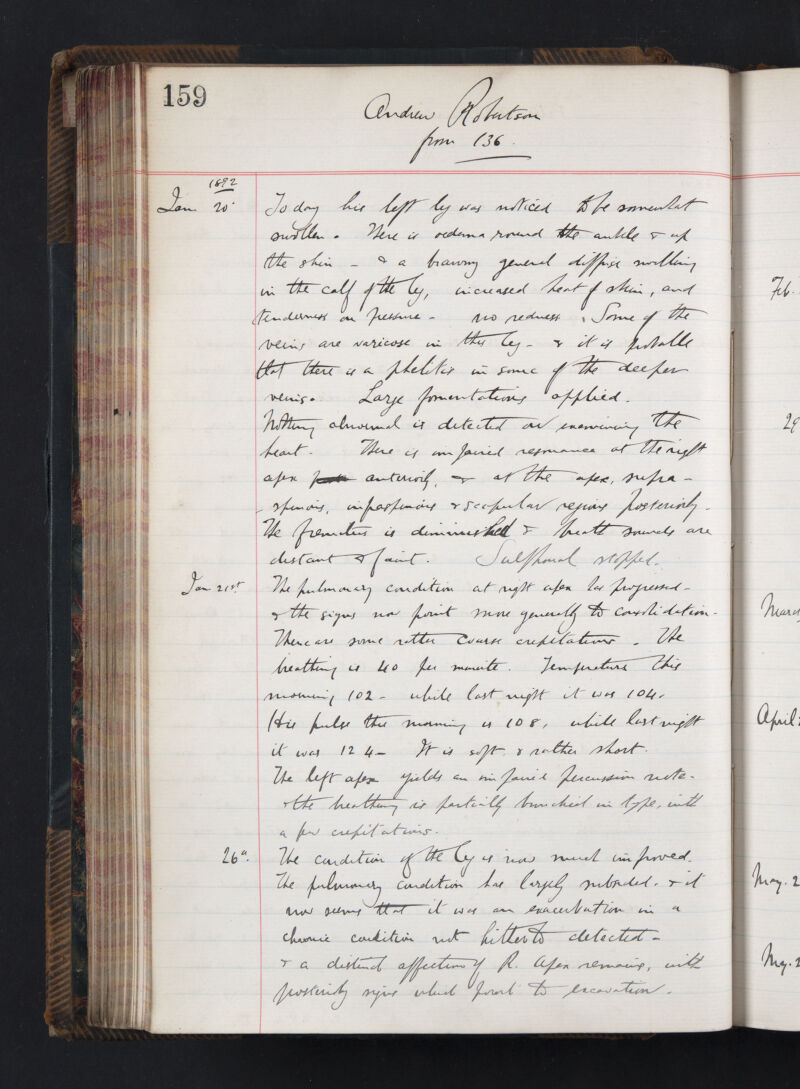 159
Andrew Robertson
from 136.
1892
Jan 20. Today his left leg was noticed to be somewhat
swollen. There is oedema round the ankle & up
the shin - & a brawny general diffuse swelling
in the calf of the leg, increased heat of skin, and
tenderness on pressure - no redness. Some of the
veins are varicose in this leg - & it is probable
that there is a phlebitis in some of the deeper
veins. Large fomentations applied.
Nothing abnormal is detected on examining the
heart. There is impaired resonance at the right
apex anteriorly, & at the apex, supra-
-spinous, infraspinous & scapular regions posteriorly.
The fremitus is diminished & breath sounds are
distant & faint. Sulphonal stopped.
Jan 21st. The pulmonary condition at right apex has progressed -
& the signs now point more generally to consolidation.
There are some rather coarse crepitations. The
breathing is 40 per minute. Temperature this
morning 102 - while last night it was 104.
His pulse this morning is 108, while last night
it was 124 - It is soft & rather short.
The left apex yields an impaired percussion note -
& the breathing is partially bronchial in type, with
a few crepitations.
26th. The condition of the leg is now much improved.
The pulmonary condition has largely subsided. & it
now seems that it was an exacerbation in a
chronic condition not hitherto detected -
& a distinct affection of R. apex remains, with
posteriorly signs which point to excavation.
Feb.
29
March
April
May. 2
May. 2